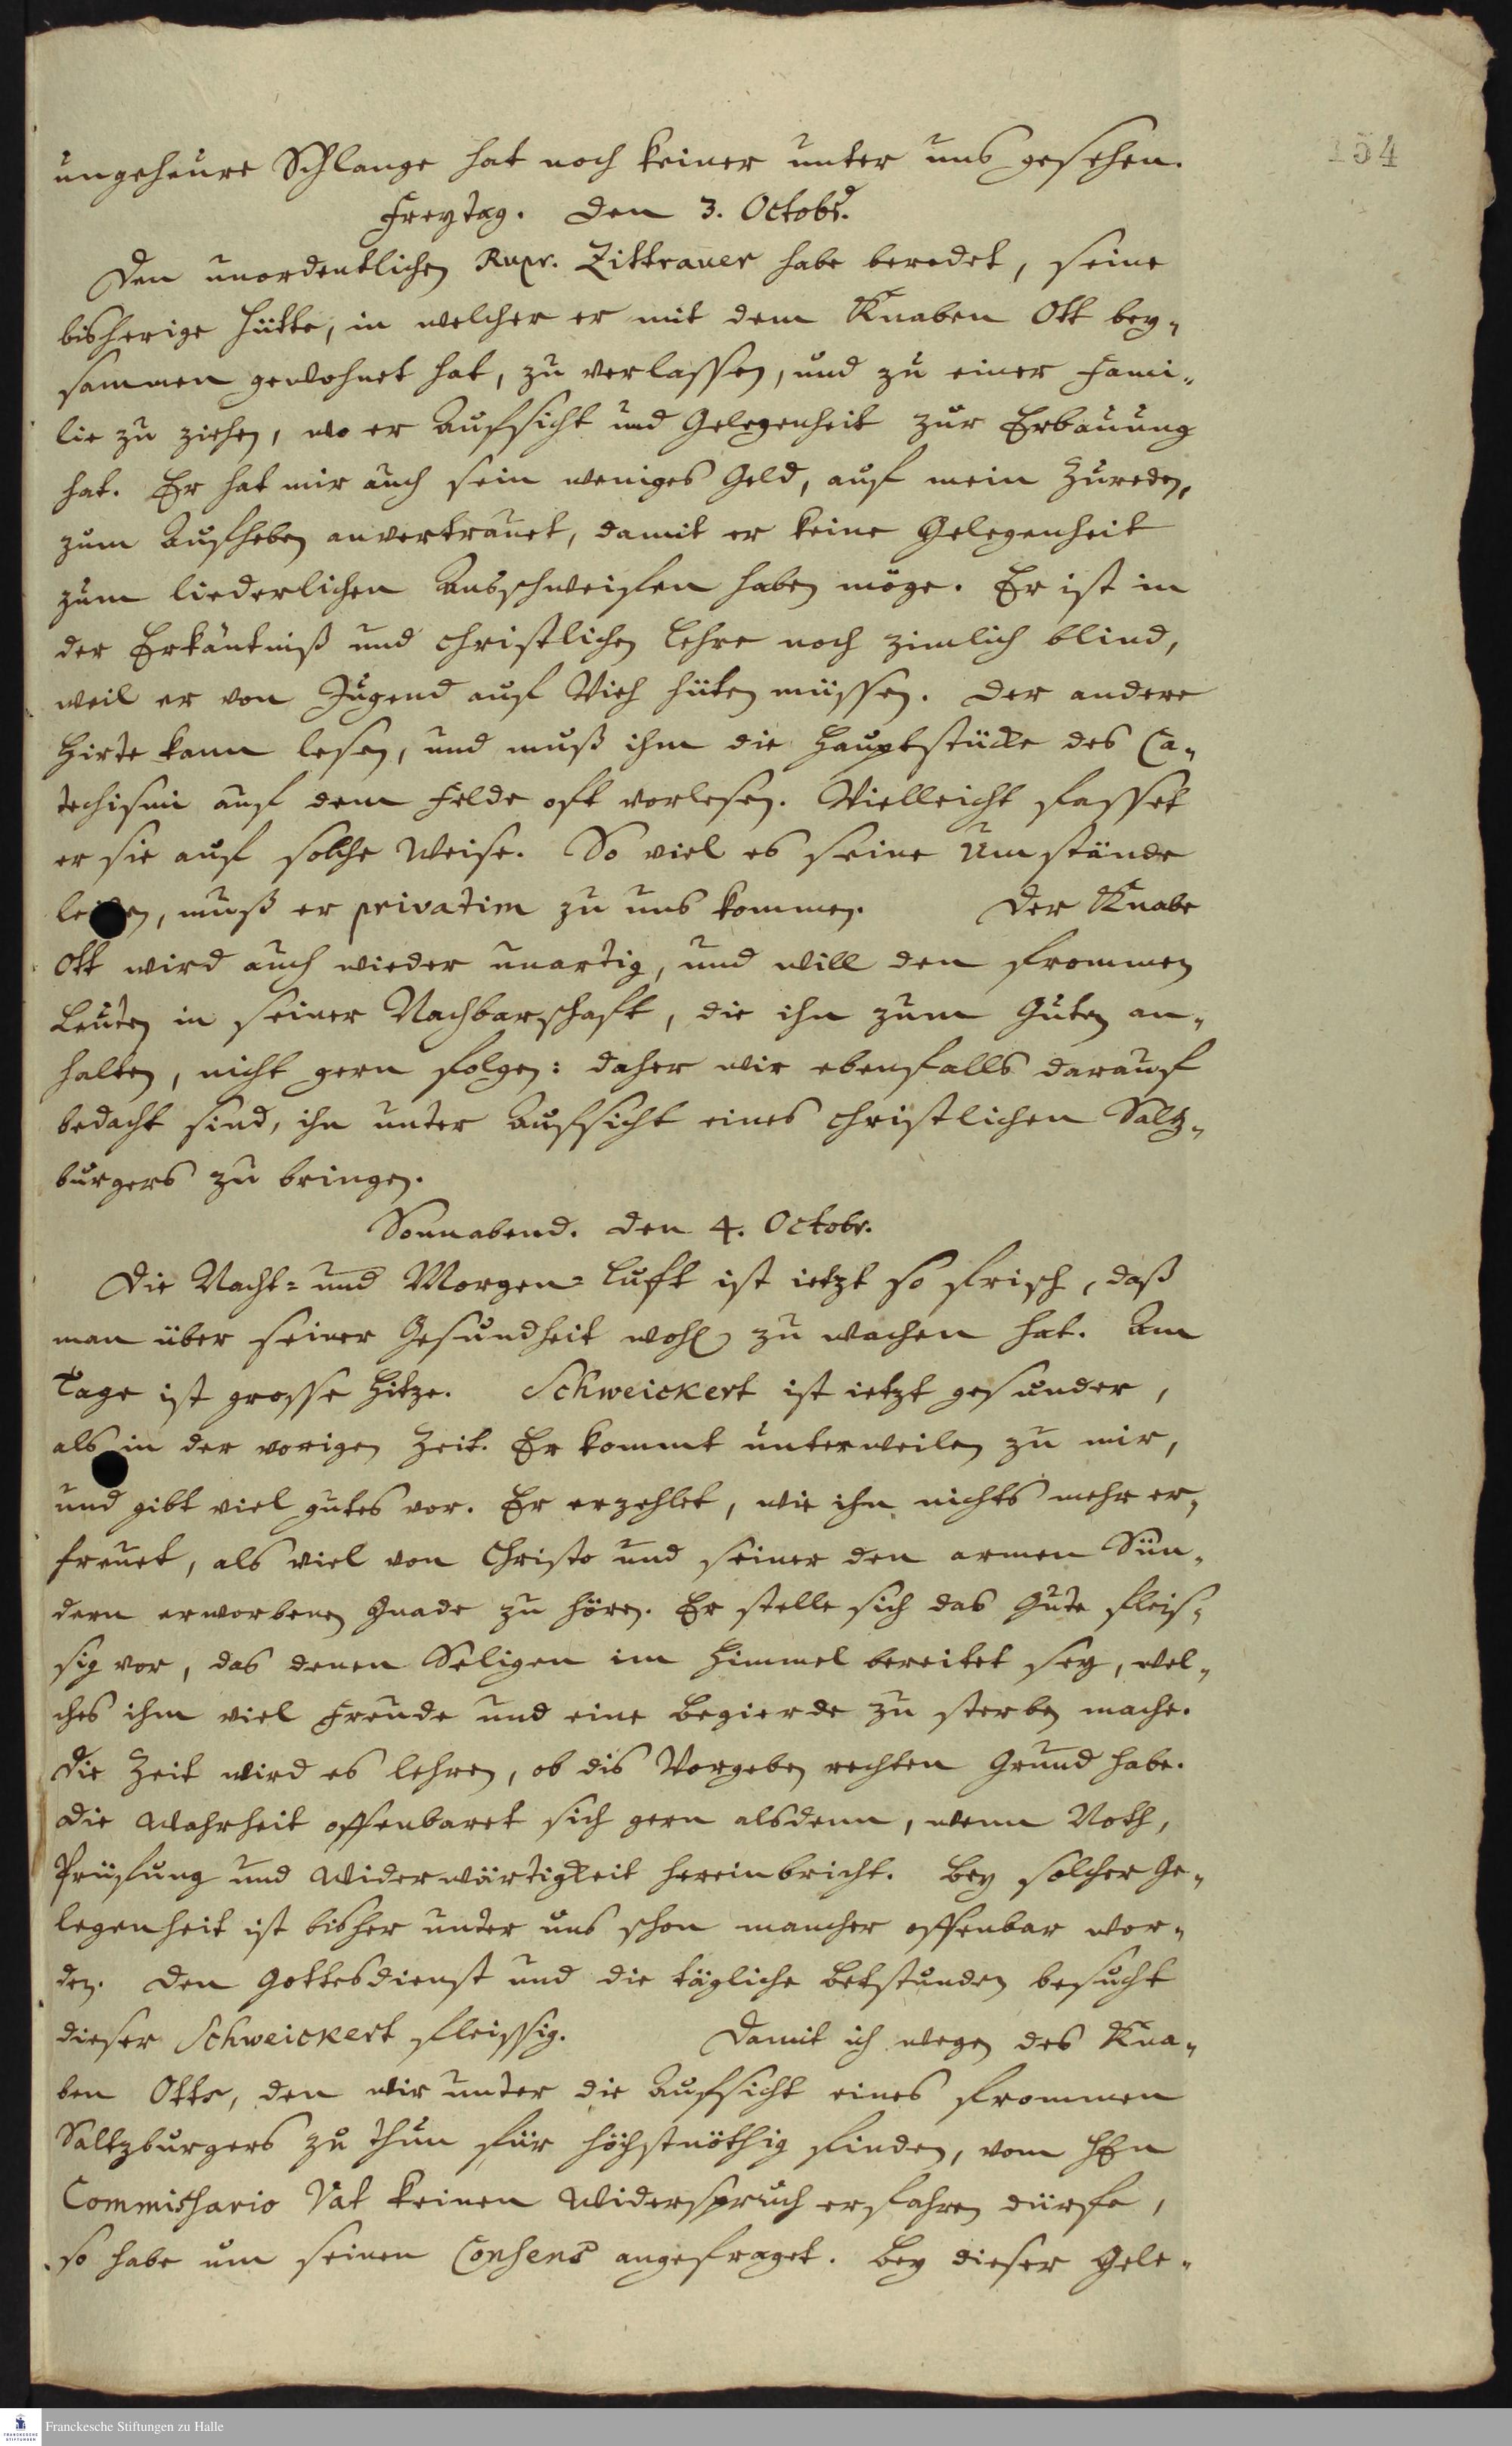 154
ungeheure Schlange hat noch keiner unter uns gesehen.
Freytag. den 3. Octobr.
Den unordentlichen Rupr. Zittrauer habe beredet, seine
bisherige Hütte, in welcher er mit dem Knaben Ott bey-
sammen gewohnet hat, zu verlassen, und zu einer Fami-
lie zu ziehen, wo er Aufsicht und Gelegenheit zur Erbauung
hat. Er hat mir auch sein weniges Geld, auf mein Zureden,
zum Aufheben anvertrauet, damit er keine Gelegenheit
zum liederlichen Ausschweifen haben möge. Er ist in
der Erkäntniß und christlichen Lehre noch zimlich blind,
weil er von Jugend auf Vieh hüten müssen. Der andere
Hirte kann lesen, und muß ihm die Hauptstücke des Ca-
techismi auf dem Felde oft vorlesen. Vielleicht fasset
er sie auf solche Weise. So viel es seine Umstände
leiden, muß er privatim zu uns kommen. Der Knabe
Ott wird auch wieder unartig, und will den frommen
Leuten in seiner Nachbarschaft, die ihn zum Guten an-
halten, nicht gern folgen: daher wir ebenfalls darauf
bedacht sind, ihn unter Aufsicht eines christlichen Saltz-
burgers zu bringen.
Sonnabend. den 4. Octobr.
Die Nacht- und Morgen-Luft ist ietzt so frisch, daß
man über seiner Gesundheit wohl zu wachen hat. Am
Tage ist grosse Hitze. Schweickert ist ietzt gesunder,
als in der vorigen Zeit. Er kommt unterweilen zu mir,
und gibt viel gutes vor. Er erzehlet, wie ihn nichts mehr er-
freuet, als viel von Christo und seiner den armen Sün-
dern erworbenen Gnade zu hören. Er stelle sich das Gute fleis-
sig vor, das denen Seligen im Himmel bereitet sey, wel-
ches ihm viel Freude und eine Begierde zu sterben mache.
Die Zeit wird es lehren, ob dis Vorgeben rechten Grund habe.
Die Wahrheit offenbaret sich gern alsdenn, wenn Noth,
Prüfung und Widerwärtigkeit hereinbricht. Bey solcher Ge-
legenheit ist bisher unter uns schon mancher offenbar wor-
den. Den Gottesdienst und die tägliche Betstunden besucht
dieser Schweickert fleissig. Damit ich wegen des Kna-
ben Otts, den wir unter die Aufsicht eines frommen
Saltzburgers zu thun für höchstnöthig finden, vom HEn
Commissario Vat keinen Widerspruch erfahren dürfe,
so habe um seinen Consens angefraget. Bey dieser Gele-
Franckesche Stiftungen zu Halle